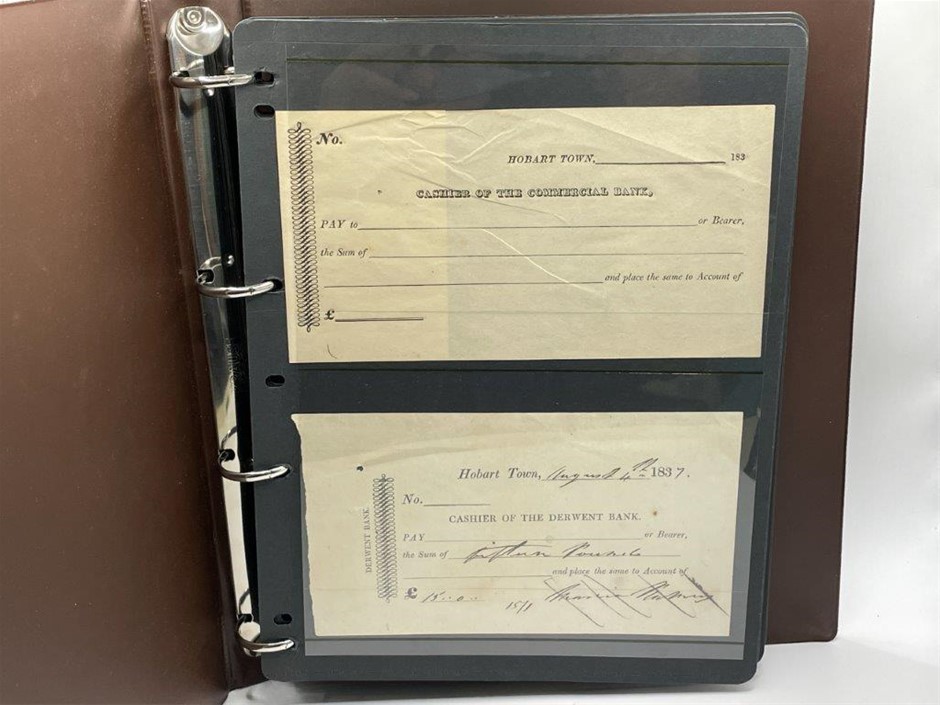 No.
HOBART TOWN, 183
CASHIER OF THE COMMERCIAL BANK,
PAY to or Bearer,
the Sum of
and place the same to Account of
£
Hobart Town, August 4th 1837.
No.
CASHIER OF THE DERWENT BANK.
DERWENT BANK
PAY or Bearer,
the Sum of fifteen Pounds
and place the same to Account of
£ 15..0..